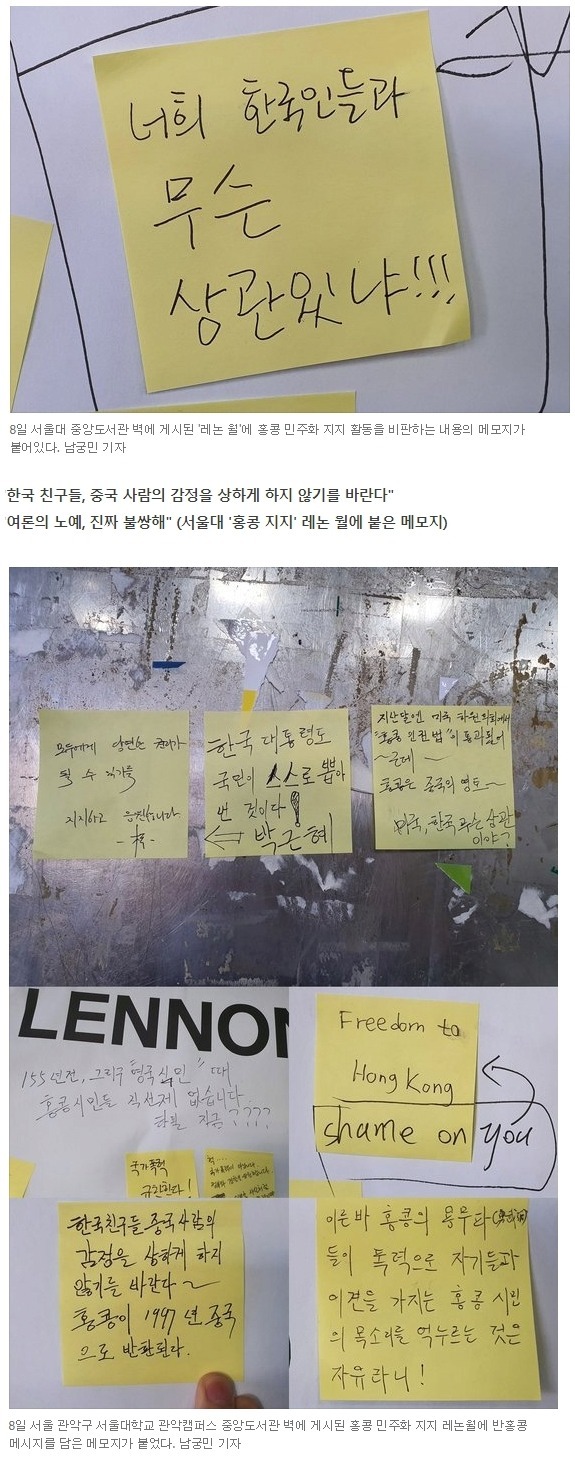 너희 한국인들과
무슨
상관있냐!!!
8일 서울대 중앙도서관 벽에 게시된 '레논 월'에 홍콩 민주화 지지 활동을 비판하는 내용의 메모지가
붙어있다. 남궁민 기자
한국 친구들, 중국 사람의 감정을 상하게 하지 않기를 바란다"
여론의 노예, 진짜 불쌍해" (서울대 '홍콩 지지' 레논 월에 붙은 메모지)
모두에게 당연한 권리가
될 수 있기를
지지하고 응원합니다
한국 대통령도
국민이 스스로 뽑아
번 것이다!
박근혜
지난달엔 미국 하원의회에서
"홍콩 인권법"이 통과됐어
~근데~
홍콩은 중국의 영토~
미국, 한국 무슨 상관
이야?
LENNON
155년전, 그리구 "영국식민" 때
홍콩시민들 직선제 없습니다
하필 지금????
국가폭력
규탄한다!
Freedom to
Hong Kong
shame on you
한국친구들 중국사람의
감정을 상하게 하지
않기를 바란다~
홍콩이 1997년 중국
으로 반환된다.
이른바 홍콩의 용무파
들이 폭력으로 자기들과
이견을 가지는 홍콩 시민
의 목소리를 억누르는 것은
자유라니!
8일 서울 관악구 서울대학교 관악캠퍼스 중앙도서관 벽에 게시된 홍콩 민주화 지지 레논월에 반홍콩
메시지를 담은 메모지가 붙었다. 남궁민 기자